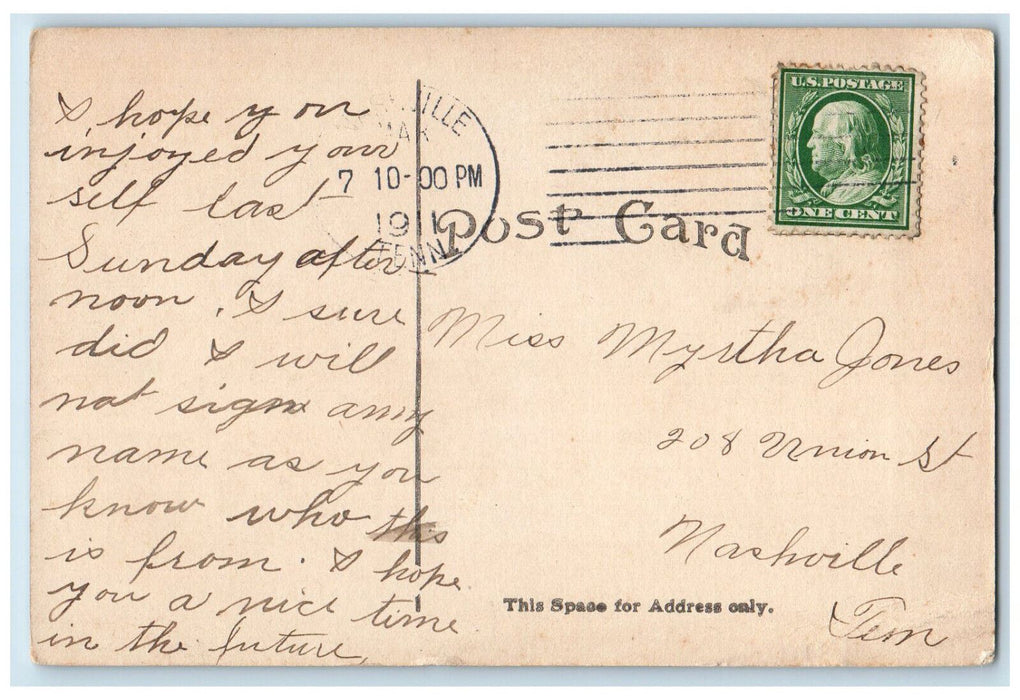 I hope you
injoyed your
self last
Sunday after
noon. I sure
did I will
not sign amy
name as you
know who this
is from. I hope
you a nice time
in the future.
VILLE
MAR
7 10-00 PM
191
TENN
U.S. POSTAGE
ONE CENT
Post Card
Miss Myrtha Jones
208 Union St
Nashville
Tenn
This Space for Address only.